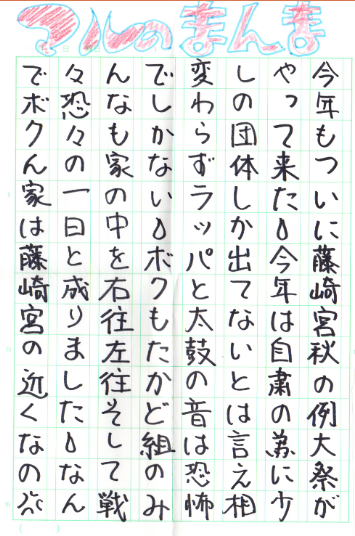 マルのまんま
今年もついに藤崎宮秋の例大祭が
やって来た。今年は自粛の為に少
しの団体しか出てないとは言え相
変わらずラッパと太鼓の音は恐怖
でしかない。ボクもたかど組のみ
んなも家の中を右往左往そして戦
々恐々の一日と成りました。なん
でボクん家は藤崎宮の近くなの